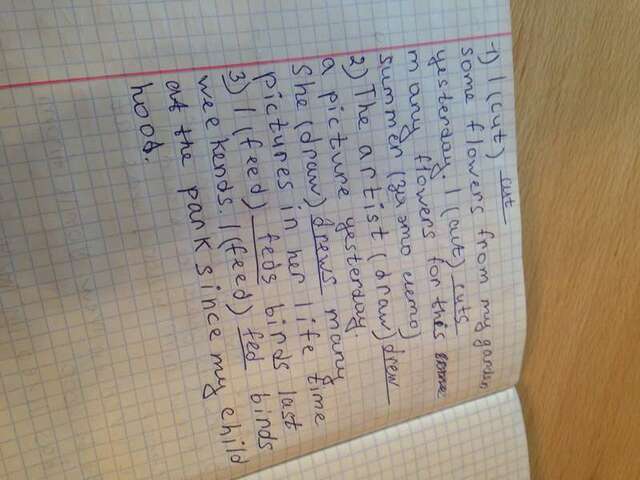 1) I (cut) cut
some flowers from my garden
yesterday. I (cut) cuts
many flowers for this some
summer (за это лето)
2) The artist (draw) drew
a picture yesterday.
She (draw) drews many
pictures in her life time
3) I (feed) feds binds last
weekends. I (feed) fed binds
at the park since my child
hood.